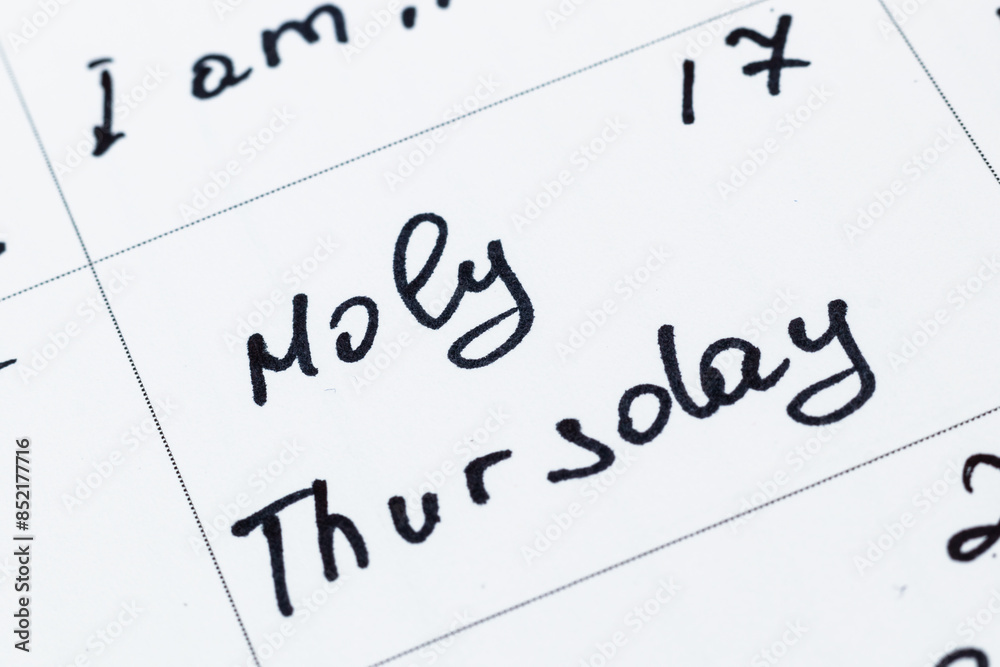 I am..
17
Moly
Thursday
2
Adobe Stock | #852177716